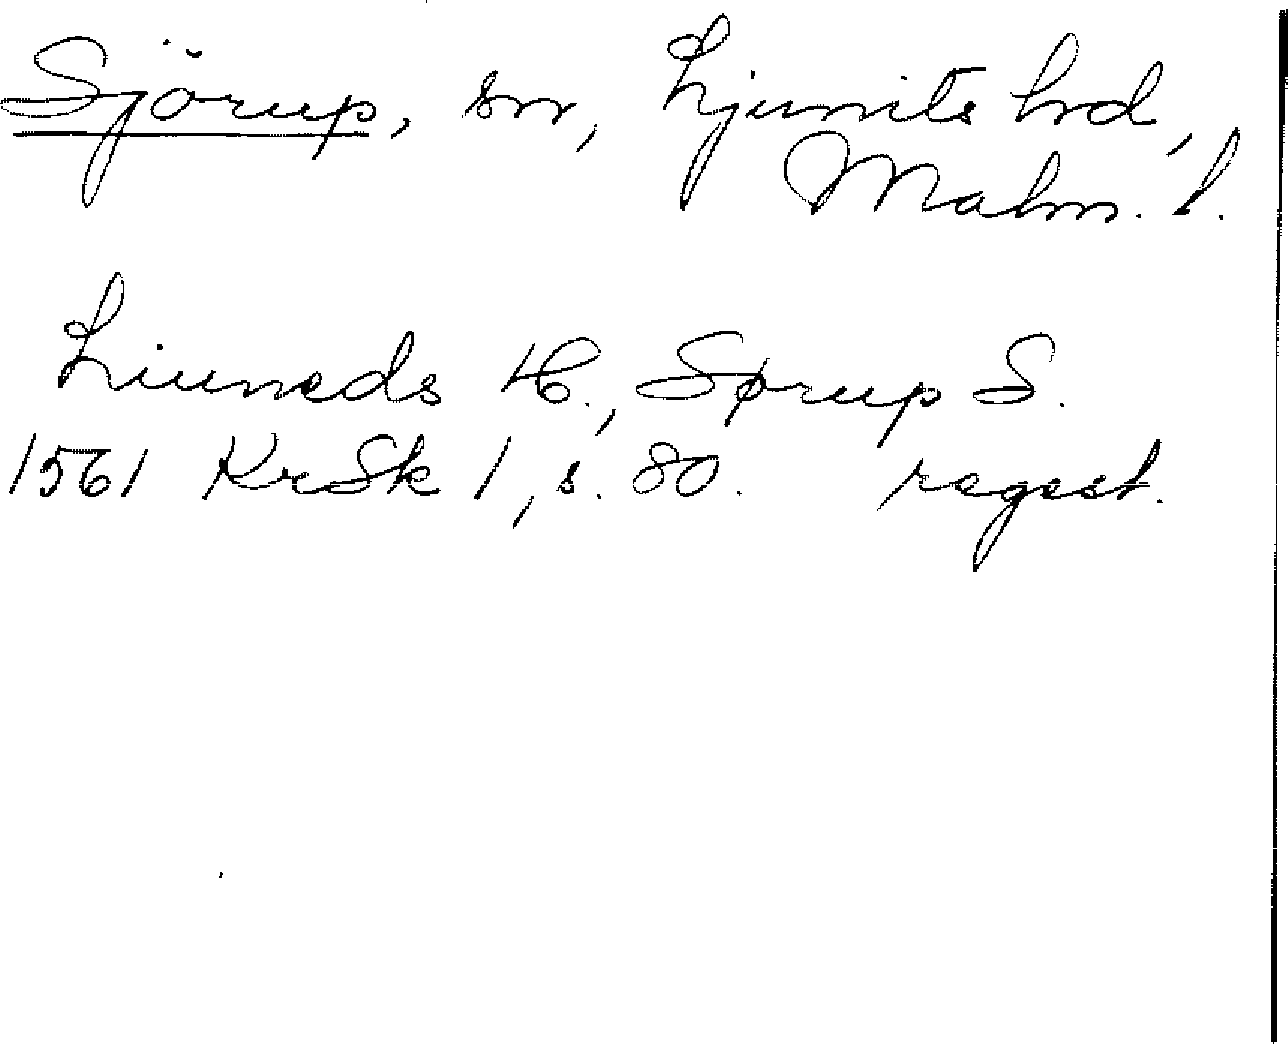 Sjörup, sn, Ljunits hrd,
Malm. l.
Liuneds H., Sørup S.
1561 KrSk 1, s. 80. regest.